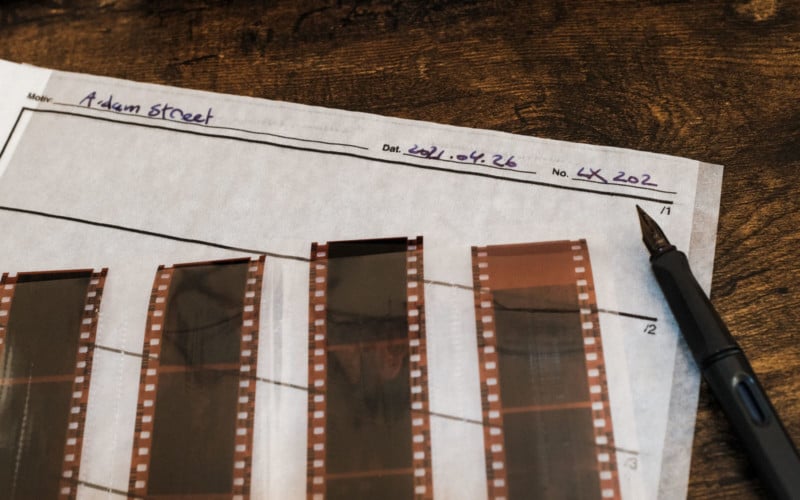 Motiv Adam Street Dat. 2021.04.26 No. LX 202
/1
/2
/3